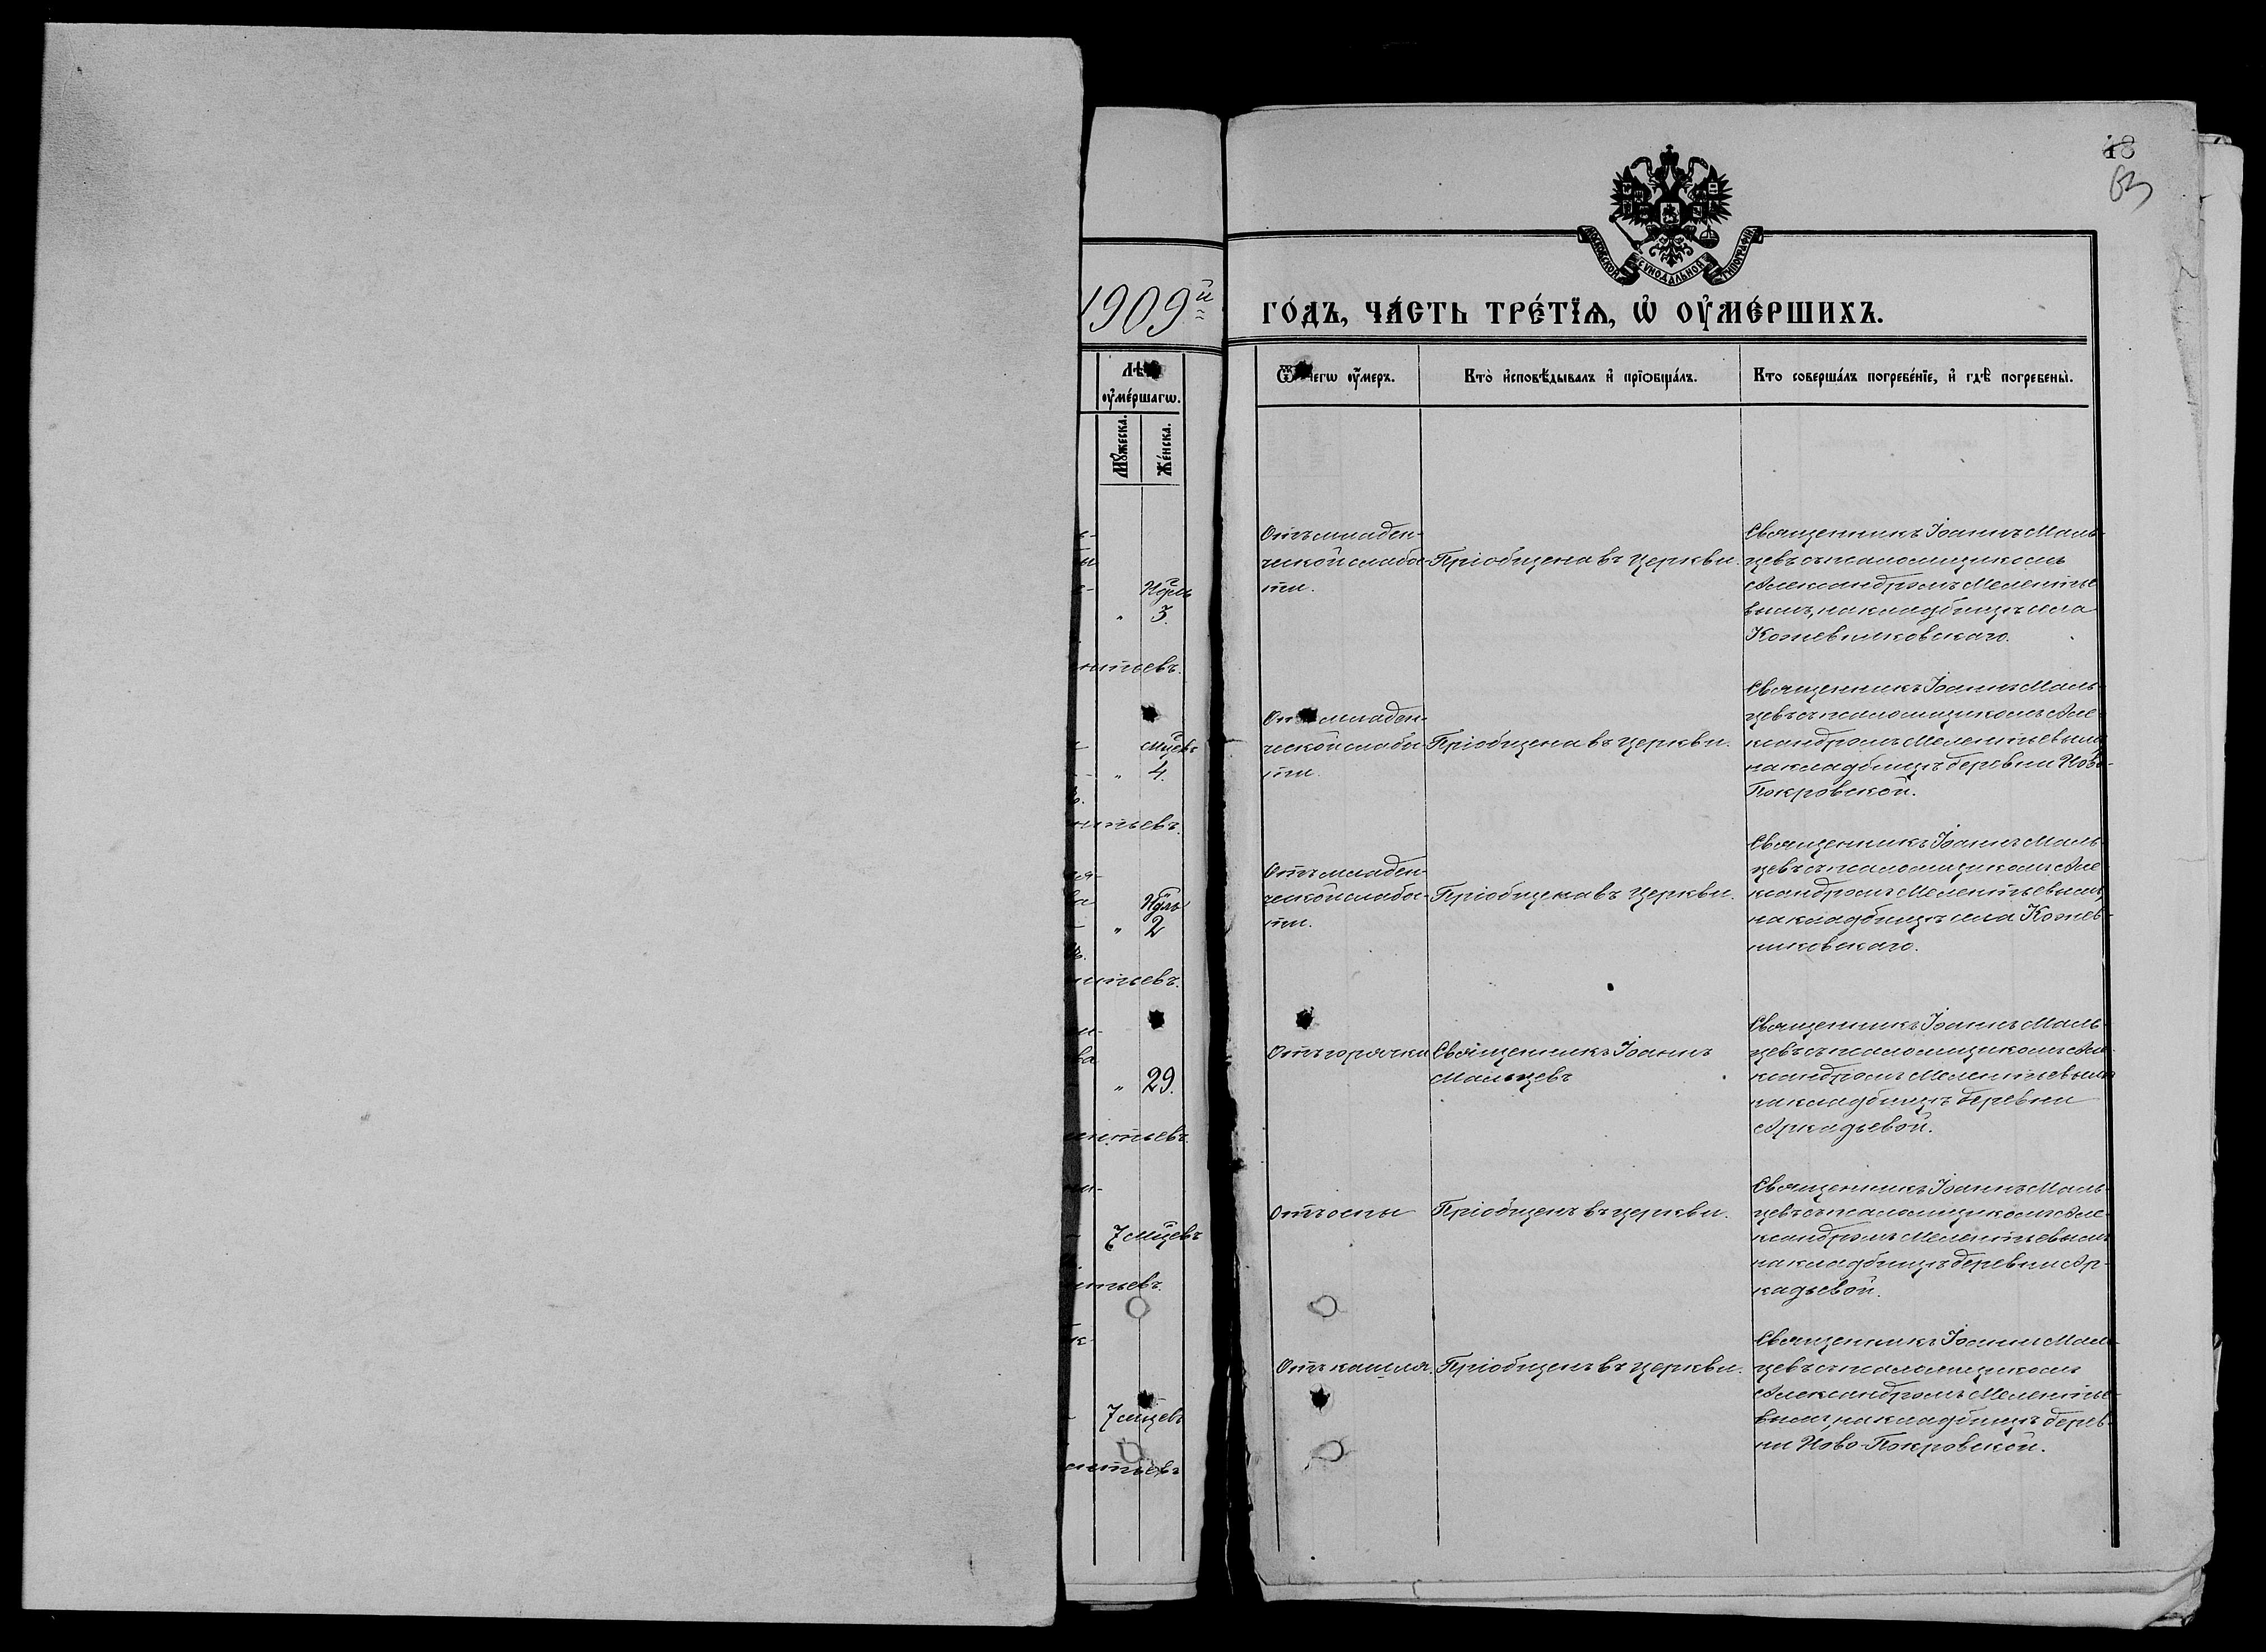 18
63
МОСКОВСКОЙ СѴНОДАЛЬНОЙ ТИПОГРАФІИ
1909й
го́дъ, ча́сть тре́тїѧ, ѡ҆ оу҆ме́ршихъ.
оу҆ме́ршагѡ.
Мꙋ́жеска.
Же́нска.
Ѿ чегѡ оу҆́меръ.
Кто̀ и҆сповѣ́дывалъ и҆ прїѡбща́лъ.
Кто соверша́лъ погребе́нїе, и҆ гдѣ̀ погребены̀.
Нѣдль
" 3.
нтьевъ.
Отъ младен-
ческой слабос-
ти.
Пріобщена въ церкви.
Священникъ Іоаннъ Маль-
цевъ съ псаломщикомъ
Александромъ Мелентье
вымъ, на кладбищѣ села
Кожевниковскаго.
мцевъ
" 4.
нтьевъ.
Отъ младен-
ческой слабос-
ти.
Пріобщена въ церкви.
Священникъ Іоаннъ Маль-
цевъ съ псаломщикомъ Але-
ксандромъ Мелентьевымъ,
на кладбищѣ деревни Ново-
Покровской.
Нѣдль
" 2
нтьевъ.
Отъ младен-
ческой слабос-
ти.
Пріобщена въ церкви.
Священникъ Іоаннъ Маль-
цевъ съ псаломщикомъ Але
ксандромъ Мелентьевымъ,
на кладбищѣ села Кожев-
никовскаго.
" 29.
ентьевъ.
Отъ горячки
Священникъ Іоаннъ
Мальцевъ
Священникъ Іоаннъ Маль-
цевъ съ псаломщикомъ Але-
ксандромъ Мелентьевымъ
на кладбищѣ деревни
Аркадьевой.
7 мцевъ
нтьевъ.
Отъ оспы
Пріобщенъ въ церкви.
Священникъ Іоаннъ Маль-
цевъ съ псаломщикомъ Але-
ксандромъ Мелентьевымъ
на кладбищѣ деревни Ар-
кадьевой.
7 мцевъ
ентьевъ
Отъ кашля.
Пріобщенъ въ церкви.
Священникъ Іоаннъ Маль-
цевъ съ псаломщикомъ
Александромъ Мелентье-
вымъ, на кладбищѣ дерев-
ни Ново-Покровской.